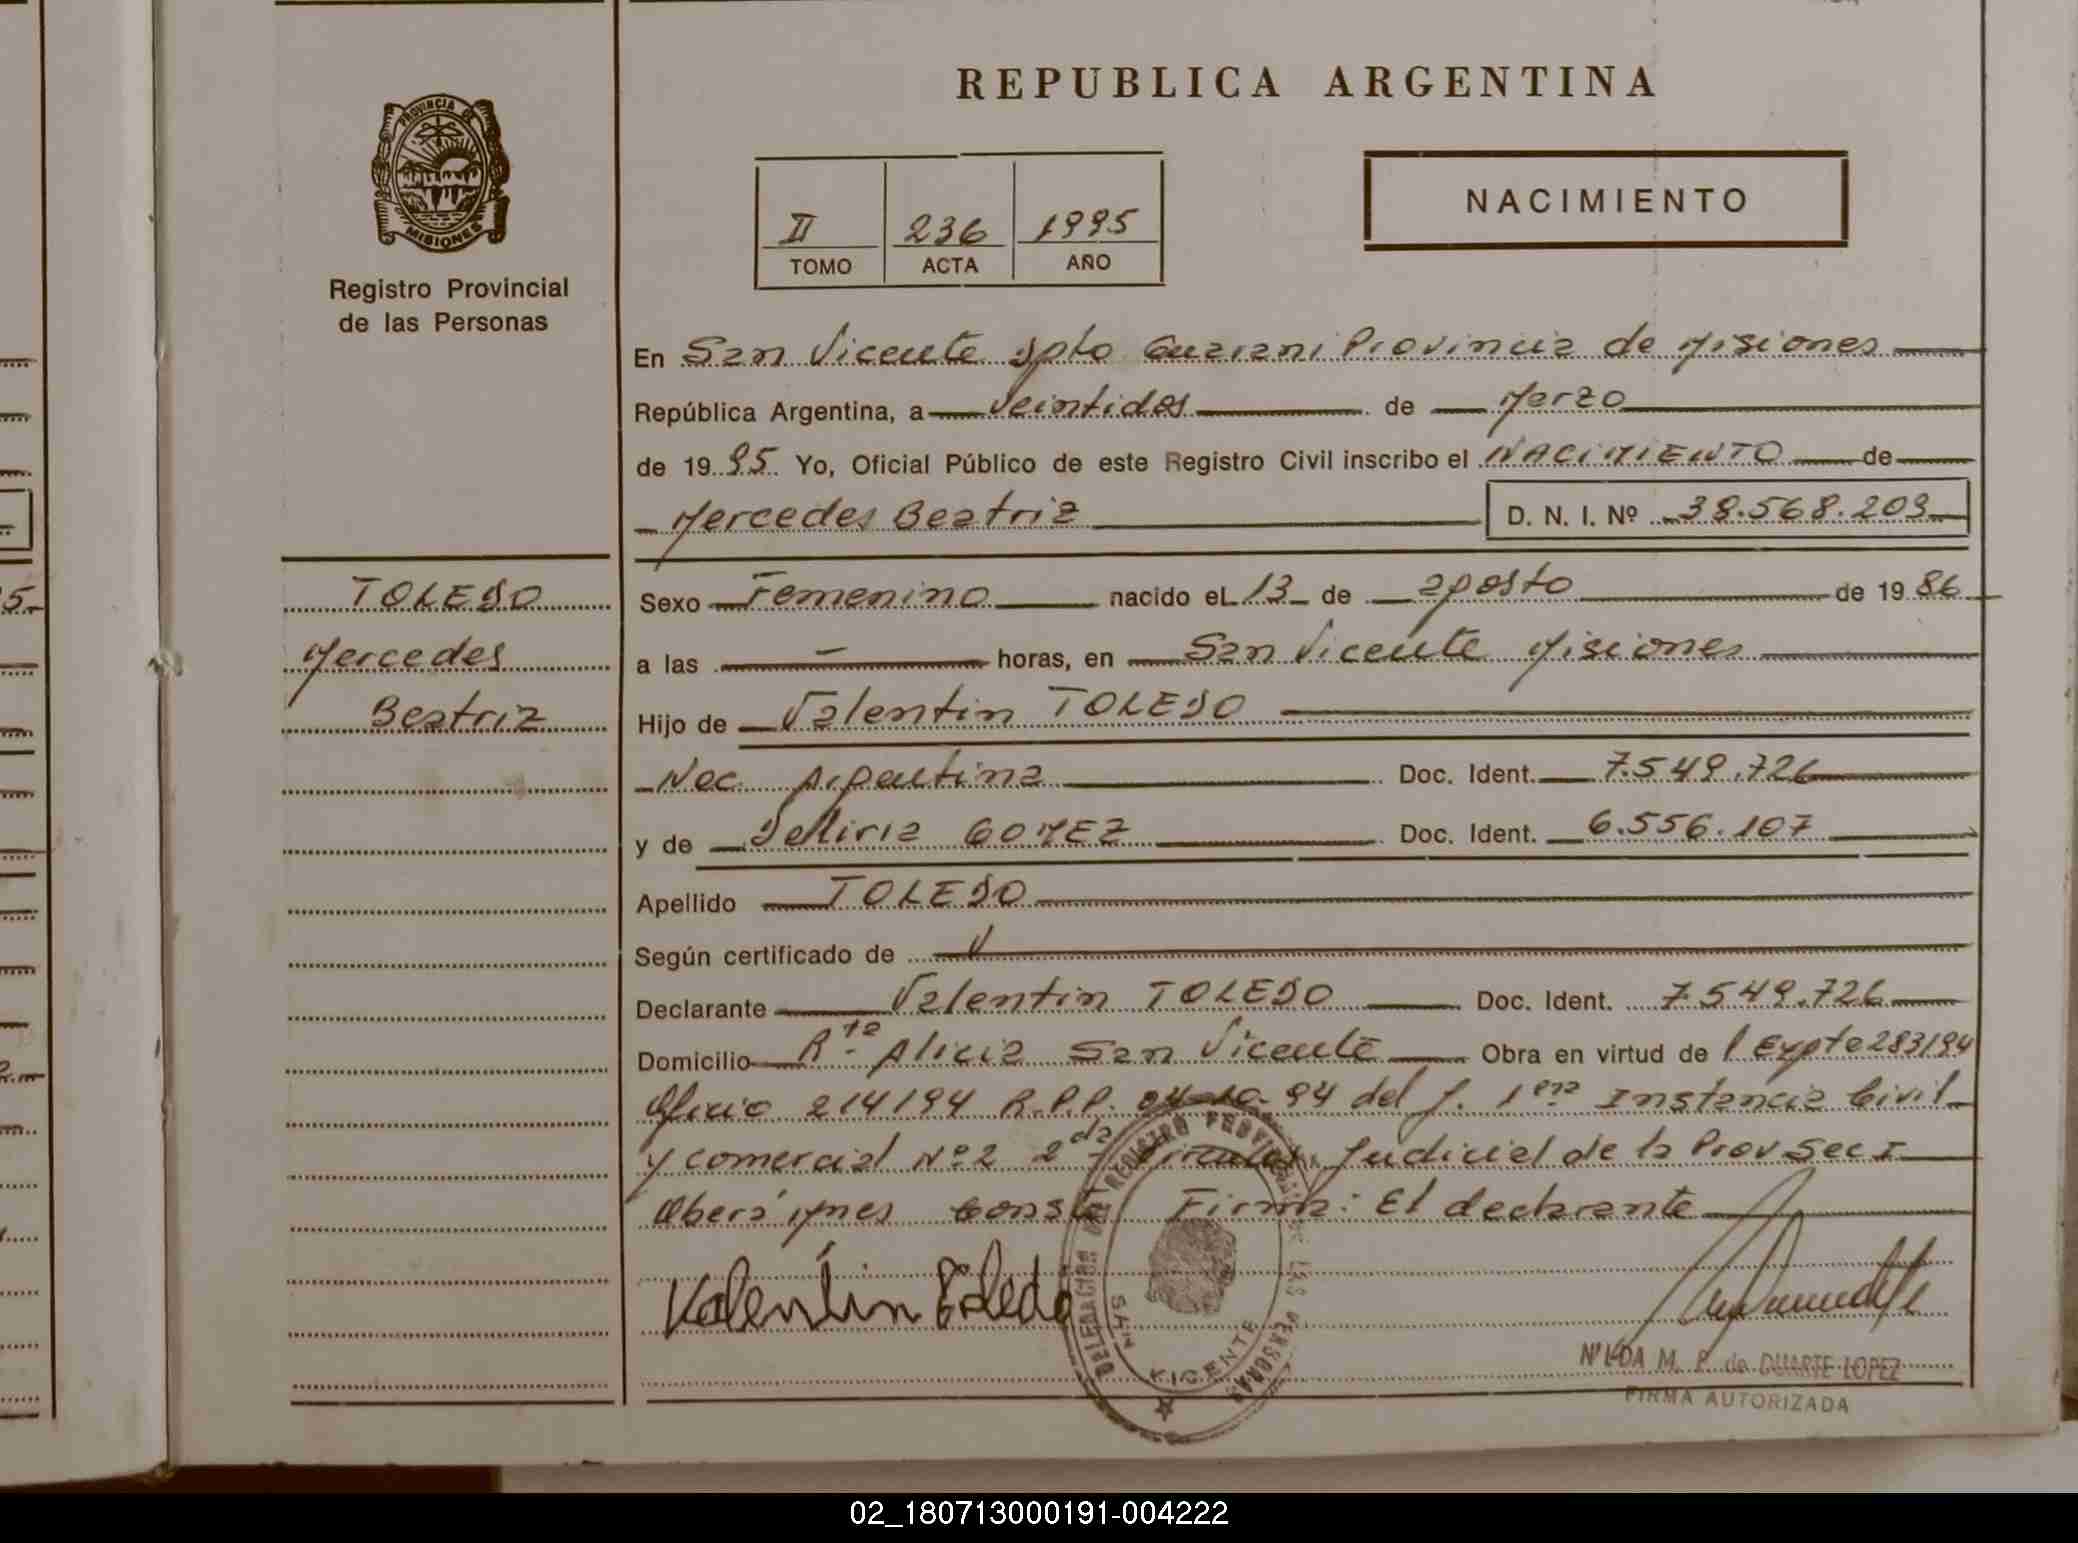 REPUBLICA ARGENTINA
PROVINCIA DE
MISIONES
Registro Provincial
de las Personas
II 236 1995
TOMO ACTA AÑO
NACIMIENTO
En San Vicente Dpto Guarani Provincia de Misiones
República Argentina, a veintidos de Marzo
de 1995 Yo, Oficial Público de este Registro Civil inscribo el NACIMIENTO de
Mercedes Beatriz D. N. I. Nº 38.568.209
TOLEDO
Mercedes
Beatriz
Sexo Femenino nacido el 13 de agosto de 1986
a las - horas, en San Vicente Misiones
Hijo de Valentin TOLEDO
Nac. Argentina Doc. Ident. 7.549.726
y de Deliria GOMEZ Doc. Ident. 6.556.107
Apellido TOLEDO
Según certificado de
Declarante Valentin TOLEDO Doc. Ident. 7.549.726
Domicilio Rta Alicia San Vicente Obra en virtud de Expte 283/94
Oficio 214/94 R.P.P. 04-10-94 del J. 1era Instancia Civil
y comercial Nº 2 2da Judicial de la Prov Sec I
Oberá Mnes Const Firma: El declarante
Valentin Toledo
DELEGACION DEL REGISTRO PROVINCIAL DE LAS PERSONAS
SAN VICENTE
NILDA M. P. de DUARTE LOPEZ
FIRMA AUTORIZADA
02_180713000191-004222